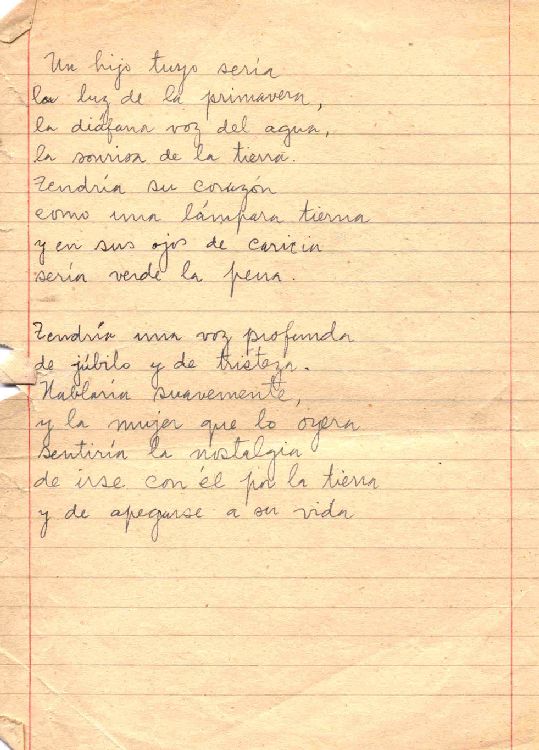 Un hijo tuyo sería
la luz de la primavera,
la diáfana voz del agua,
la sonrisa de la tierra.
Tendría su corazón
como una lámpara tierna
y en sus ojos de caricia
sería verde la pena.
Tendría una voz profunda
de júbilo y de tristeza.
Hablaría suavemente,
y la mujer que lo oyera
sentiría la nostalgia
de irse con él por la tierra
y de apegarse a su vida